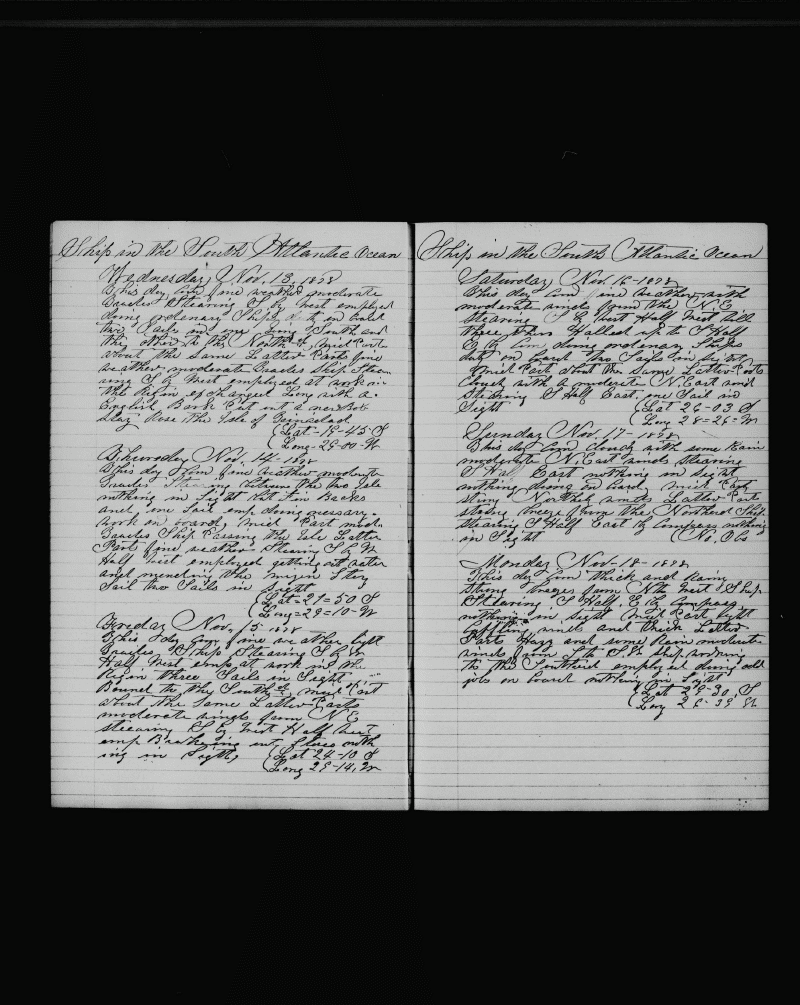 Ship in the South Atlantic Ocean
Wednesday Nov. 13. 1878
This day Com fine weather moderate
Trades Steering S by West employed
doing ordenary Ships d ts on board
two Sails in one Going South and
the other to the North mid Part
about the Same Latter Parts fine
weather moderate Trades Ship Steer
ing S by West employed at work in
the Rigin exchanged Long with a
English Bark Cut out a new
Rose the Isle of
(Lat-18-45 S
(Long-29-00-W
Thursday Nov. 14-1878
This day Com fine weather moderate
Trades Steering between the two Isle
nothing in Sight but Fin Backs
and one Sail emp doing nessary
work on board, mid Part mod
Trades Ship Passing the Isle Latter
Part fine weather Steering S by W
Half West employed getting out water
and mending the mizen Stay
Sail two Sails in Sight
(Lat=21=50 S
(Long=29=10-W
Freday Nov, 15-1878
This day Com fine weather light
Trades Ship Steering S by W
Half West emp at work in the
Rigin three Sails in Sight
Bound to the South mid Part
about the Same Latter Parts
moderate winds from N E
steering S by West Half West
emp Breaking out Flour noth
ing in Sight (Lat 24-10 S
(Long 29-14, W
Ship in the South Atlantic Ocean
Saturday Nov. 16-1878
This day Com fine weather with
moderate winds from the N. E
Stearing S by West Half West till
three then Walled up to S Half
E by Com doing ordenary Ships
dut on board two Sails in Sight
Mid Part about the Same Latter Parts
Cloudy with a moderate N East wind
Steering S Half East one Sail in
Sight (Lat 26-03 S
(Long 28=26-W
Sunday Nov. 17-1878
This day Com cloudy with some Rain
moderate N, East winds steering
S Half East nothing in Sight
nothing doing on board, mid Part
strong Norther winds Latter Parts
strong breeze from the Northerd Ship
Stearing S Half East by Compass nothing
in Sight (No, Obs
Monday Nov-18-1878
This day Com thick and Rain
strong breezes from Nth West Ship
Steering S Half, E by Compass
nothing in Sight Mid Part light
baffling winds and thick Latter
Parts Hazy and some Rain moderate
winds from S to S.E Ship working
to the Southard employed doing odd
jobs on board nothing in Sight
(Lat 29-30, S
(Long 26-39 W